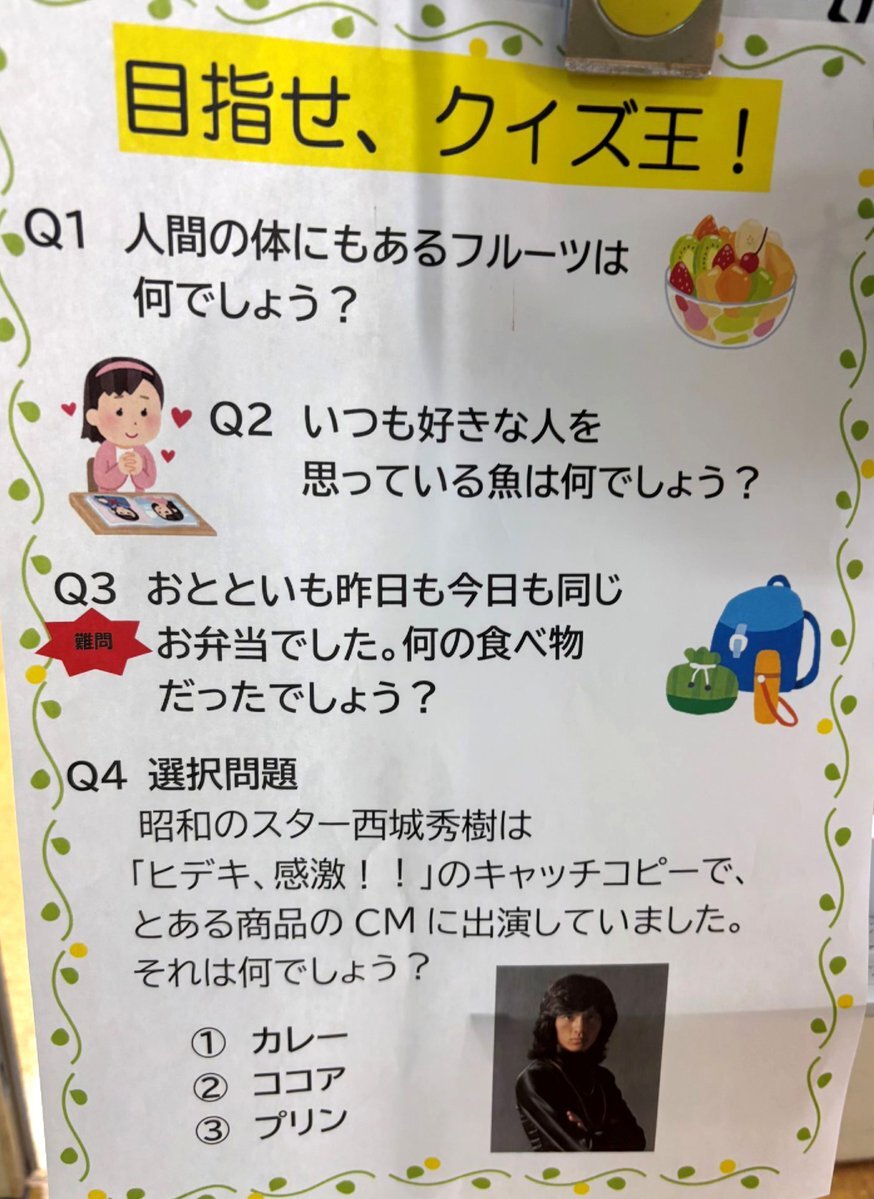 目指せ、クイズ王！
Q1 人間の体にもあるフルーツは
何でしょう？
Q2 いつも好きな人を
思っている魚は何でしょう？
Q3 おとといも昨日も今日も同じ
難問
お弁当でした。何の食べ物
だったでしょう？
Q4 選択問題
昭和のスター西城秀樹は
「ヒデキ、感激！！」のキャッチコピーで、
とある商品のCMに出演していました。
それは何でしょう？
① カレー
② ココア
③ プリン